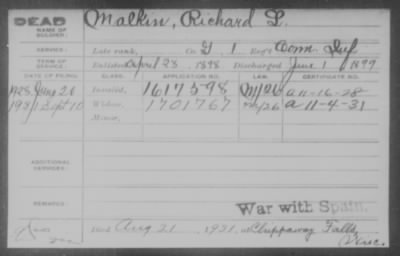 DEAD
NAME OF SOLDIER:
Malkin, Richard L.
SERVICE: Late rank, Co. G 1 Reg't Conn. Inf
TERM OF SERVICE: Enlisted April 28, 1898 Discharged June 1, 1899
DATE OF FILING. CLASS. APPLICATION NO. LAW. CERTIFICATE NO.
1928 June 20 Invalid, 1617598 a 11-16-28
1931 Sept 10 Widow, 1701767 a 11-4-31
Minor,
ADDITIONAL SERVICES:
War with Spain.
REMARKS:
Died Aug 21, 1931, at Chippaway Falls,